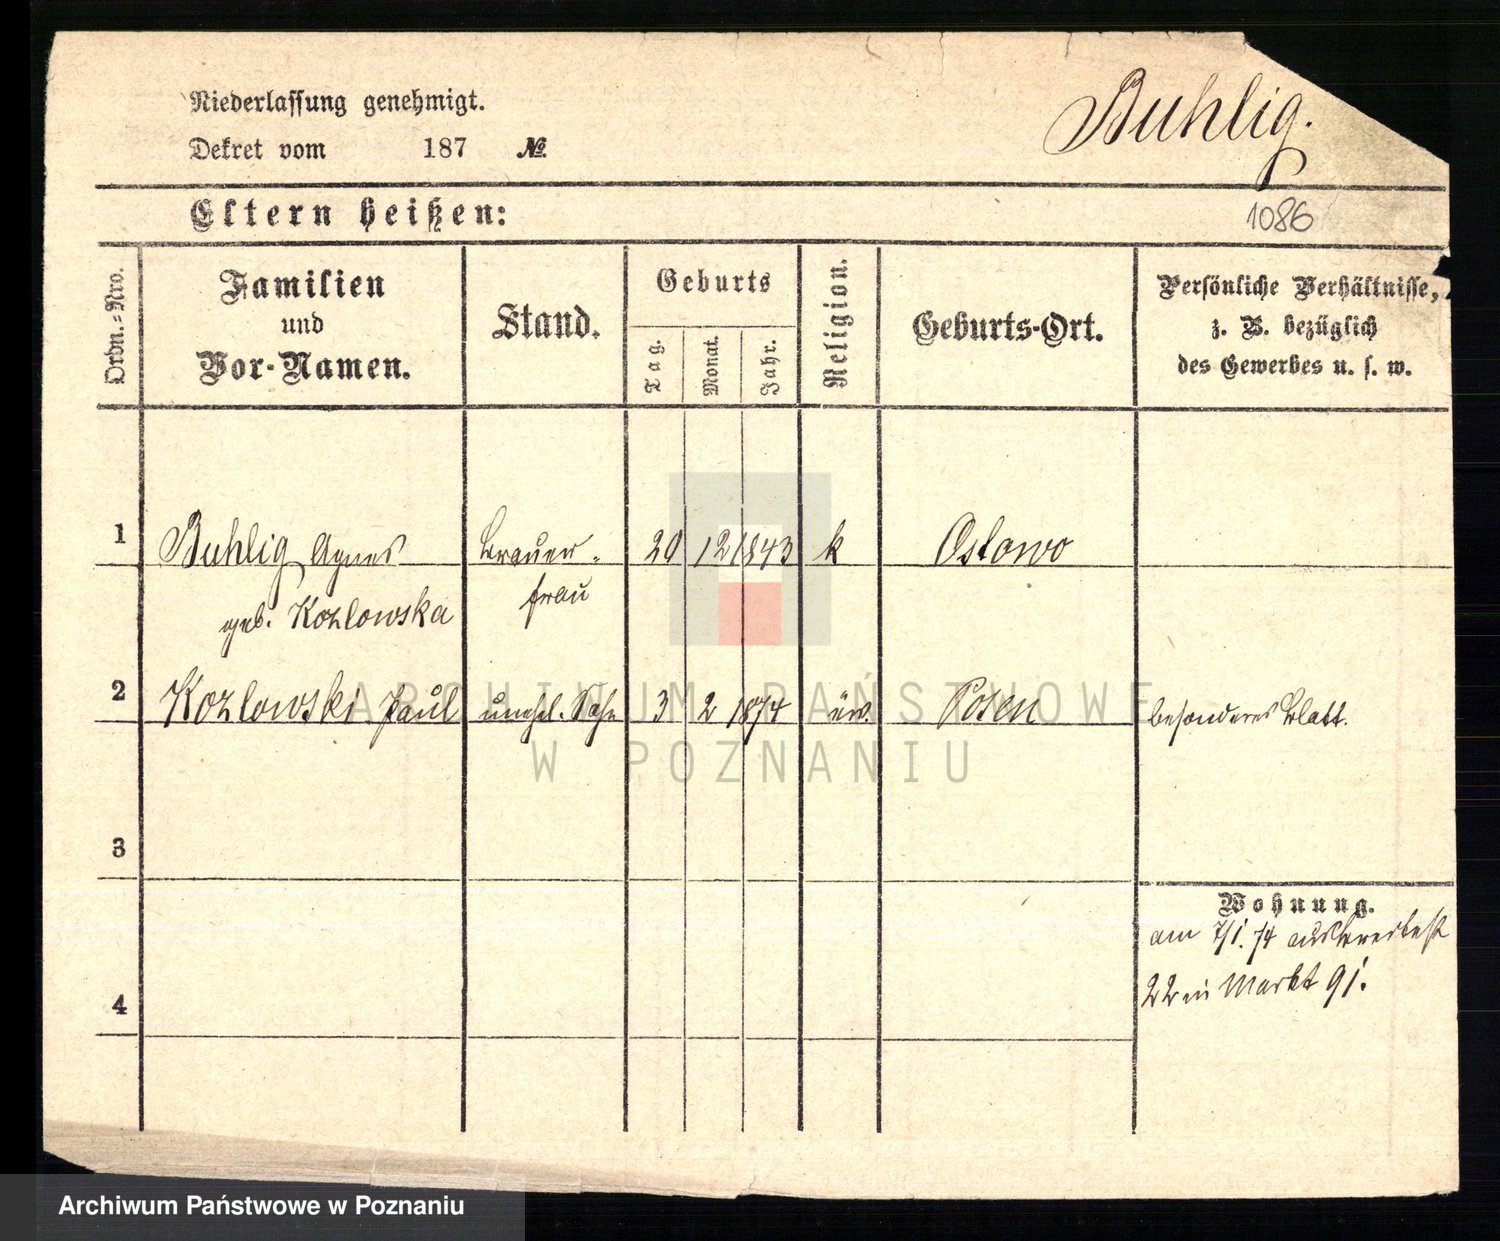 Niederlassung genehmigt.
Buhlig.
Dekret vom 187 №
Eltern heißen:
1086
Ordn.-Nro.
Familien
und
Vor-Namen.
Stand.
Geburts
Tag.
Monat.
Jahr.
Religion.
Geburts-Ort.
Persönliche Verhältnisse,
z. B. bezüglich
des Gewerbes u. s. w.
1 Buhlig Agnes Brauer- 20 12 1843 k Ostowo
frau
geb. Kozlowska
2 Kozlowski Paul unehl. Sohn 3 2 1874 Posen besonderes Blatt.
ARCHIWUM PAŃSTWOWE
W POZNANIU
3
Wohnung.
am 7/1. 74
4
Markt 91.
Archiwum Państwowe w Poznaniu